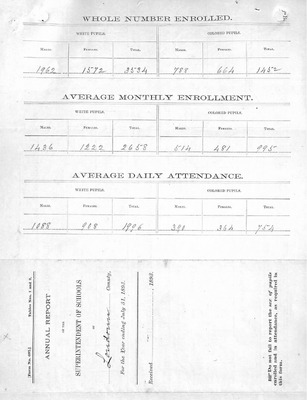 WHOLE NUMBER ENROLLED.
WHITE PUPILS. COLORED PUPILS.
MALES. FEMALES. TOTAL. MALES. FEMALES. TOTAL.
1962 1572 3534 788 664 1452
AVERAGE MONTHLY ENROLLMENT.
WHITE PUPILS. COLORED PUPILS.
MALES. FEMALES. TOTAL. MALES. FEMALES. TOTAL.
1436 1222 2658 514 481 995
AVERAGE DAILY ATTENDANCE.
WHITE PUPILS. COLORED PUPILS.
MALES. FEMALES. TOTAL. MALES. FEMALES. TOTAL.
1088 908 1996 390 364 754
Tables Nos. 4 and 5.
ANNUAL REPORT
OF THE
SUPERINTENDENT OF SCHOOLS
OF
Loudoun County,
For the Year ending July 31, 1893.
Received 1893.
Do not fail to report the sex of pupils
enrolled and in attendance, as required in
this form.